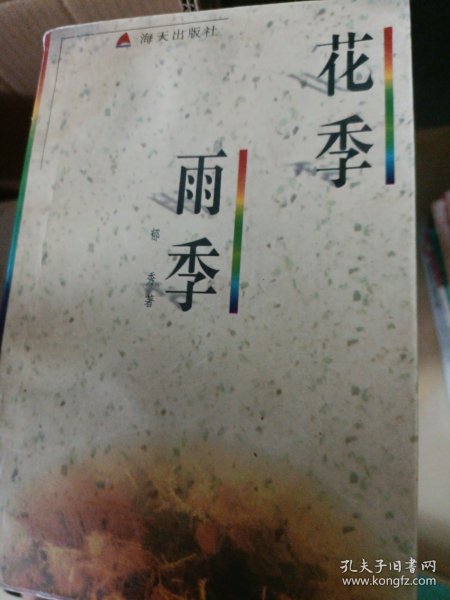 海天出版社
花季
雨季
郁秀著
孔夫子旧书网
www.kongfz.com